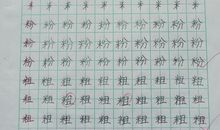 米 米 米 米 米 米 米 米
粉 粉 粉 粉 粉 粉 粉 粉
粉 粉 粉 粉 粉 粉 粉 粉
粉 粉 粉 粉 粉 粉 粉 粉
粗 粗 粗 粗 粗 粗 粗 粗
粗 粗 粗 粗 粗 粗 粗 粗
粗 粗 粗 粗 粗 粗 粗 粗